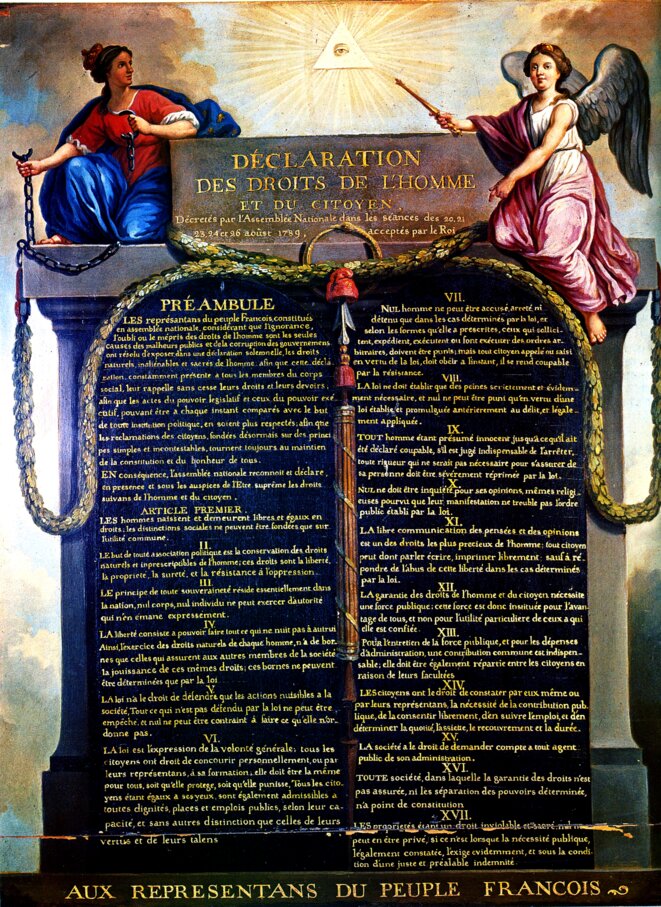 DÉCLARATION
DES DROITS DE L'HOMME
ET DU CITOYEN,
Décretés par l'Assemblée Nationale dans les séances des 20, 21
23, 24 et 26 aoûst 1789, acceptés par le Roi
PRÉAMBULE
LES représentans du peuple François, constitués
en assemblée nationale, considérant que l'ignorance,
l'oubli ou le mépris des droits de l'homme sont les seules
causes des malheurs publics et de la corruption des gouvernemens
ont résolu d'exposer, dans une déclaration solemnelle, les droits
naturels, inaliénables et sacrés de l'homme: afin que cette décla
ration, constamment présente a tous les membres du corps
social, leur rappelle sans cesse leurs droits et leurs devoirs;
afin que les actes du pouvoir législatif et ceux du pouvoir exé
cutif, pouvant être a chaque instant comparés avec le but
de toute institution politique, en soient plus respectés; afin que
les reclamations des citoyens, fondées désormais sur des princi
pes simples et incontestables, tournent toujours au maintien
de la constitution et du bonheur de tous.
EN conséquence, l'assemblée nationale reconnoit et déclare,
en presence et sous les auspices de l'Etre suprême les droits
suivans de l'homme et du citoyen.
ARTICLE PREMIER.
LES hommes naissent et demeurent libres et égaux en
droits; les distinctions sociales ne peuvent être fondées que sur
l'utilité commune.
II.
LE but de toute association politique est la conservation des droits
naturels et inprescriptibles de l'homme; ces droits sont la liberté,
la propriété, la sureté, et la résistance à l'oppression.
III.
LE principe de toute souveraineté réside essentiellement dans
la nation, nul corps, nul individu ne peut exercer d'autorité
qui n'en émane expressément.
IV.
LA liberté consiste a pouvoir faire tout ce qui ne nuit pas à autrui
Ainsi, l'exercice des droits naturels de chaque homme, n'a de bor-
nes que celles qui assurent aux autres membres de la société
la jouissance de ces mêmes droits; ces bornes ne peuvent
être déterminées que par la loi
V.
LA loi n'a le droit de défendre que les actions nuisibles a la
société. Tout ce qui n'est pas défendu par la loi ne peut être
empêché, et nul ne peut être contraint à faire ce qu'elle n'or-
donne pas.
VI.
LA loi est l'expression de la volonté générale; tous les
citoyens ont droit de concourir personnellement, ou par
leurs représentans, à sa formation; elle doit être la même
pour tous, soit qu'elle protege, soit qu'elle punisse, Tous les cito
yens étant égaux a ses yeux, sont également admissibles a
toutes dignités, places et emplois publics, selon leur ca-
pacité, et sans autres distinction que celles de leurs
vertus et de leurs talens
VII.
NUL homme ne peut être accusé, arreté, ni
détenu que dans les cas déterminés par la loi, et
selon les formes qu'elle a prescrites, ceux qui sollici-
tent, expédient, exécutent ou font exécuter des ordres ar-
bitraires, doivent être punis; mais tout citoyen appelé ou saisi
en vertu de la loi, doit obéir a l'instant, il se rend coupable
par la résistance.
VIII.
LA loi ne doit établir que des peines strictement et évidem-
ment nécessaire, et nul ne peut être puni qu'en vertu d'une
loi établie et promulguée antérierement au délit, et légale-
ment appliquée.
IX.
TOUT homme étant présumé innocent jusqu'a ce qu'il ait
été déclaré coupable, s'il est jugé indispensable de l'arrêter,
toute rigueur qui ne serait pas nécessaire pour s'assurer de
sa personne doit être sévèrement réprimée par la loi.
X.
NUL ne doit être inquiété pour ses opinions, mêmes religi-
euses pourvu que leur manifestation ne trouble pas l'ordre
public établi par la loi.
XI.
LA libre communication des pensées et des opinions
est un des droits les plus precieux de l'homme; tout citoyen
peut dont parler écrire, imprimer librement; sauf à ré-
pondre de l'abus de cette liberté dans les cas déterminés
par la loi.
XII.
LA garantie des droits de l'homme et du citoyen nécessite
une force publique; cette force est donc instituée pour l'avan-
tage de tous, et non pour l'utilité particulière de ceux a qui
elle est confiée.
XIII.
POUR l'entretien de la force publique, et pour les dépenses
d'administration, une contribution commune est indispen-
sable; elle doit être également répartie entre les citoyens en
raison de leurs facultées
XIV.
LES citoyens ont le droit de constater par eux même ou
par leurs représentans, la nécessité de la contribution pub-
lique, de la consentir librement, d'en suivre l'emploi, et d'en
déterminer la quotité, l'assiette, le recouvrement et la durée.
XV.
LA société a le droit de demander compte a tout agent
public de son administration.
XVI.
TOUTE société, dans laquelle la garantie des droits n'est
pas assurée, ni les séparation des pouvoirs déterminée,
n'a point de constitution
XVII.
LES proprietés étant un droit inviolable et sacré, nul ne
peut en être privé, si ce n'est lorsque la nécessité publique,
légalement constatée, l'exige evidemment, et sous la condi
tion d'une juste et préalable indemnité
AUX REPRESENTANS DU PEUPLE FRANCOIS